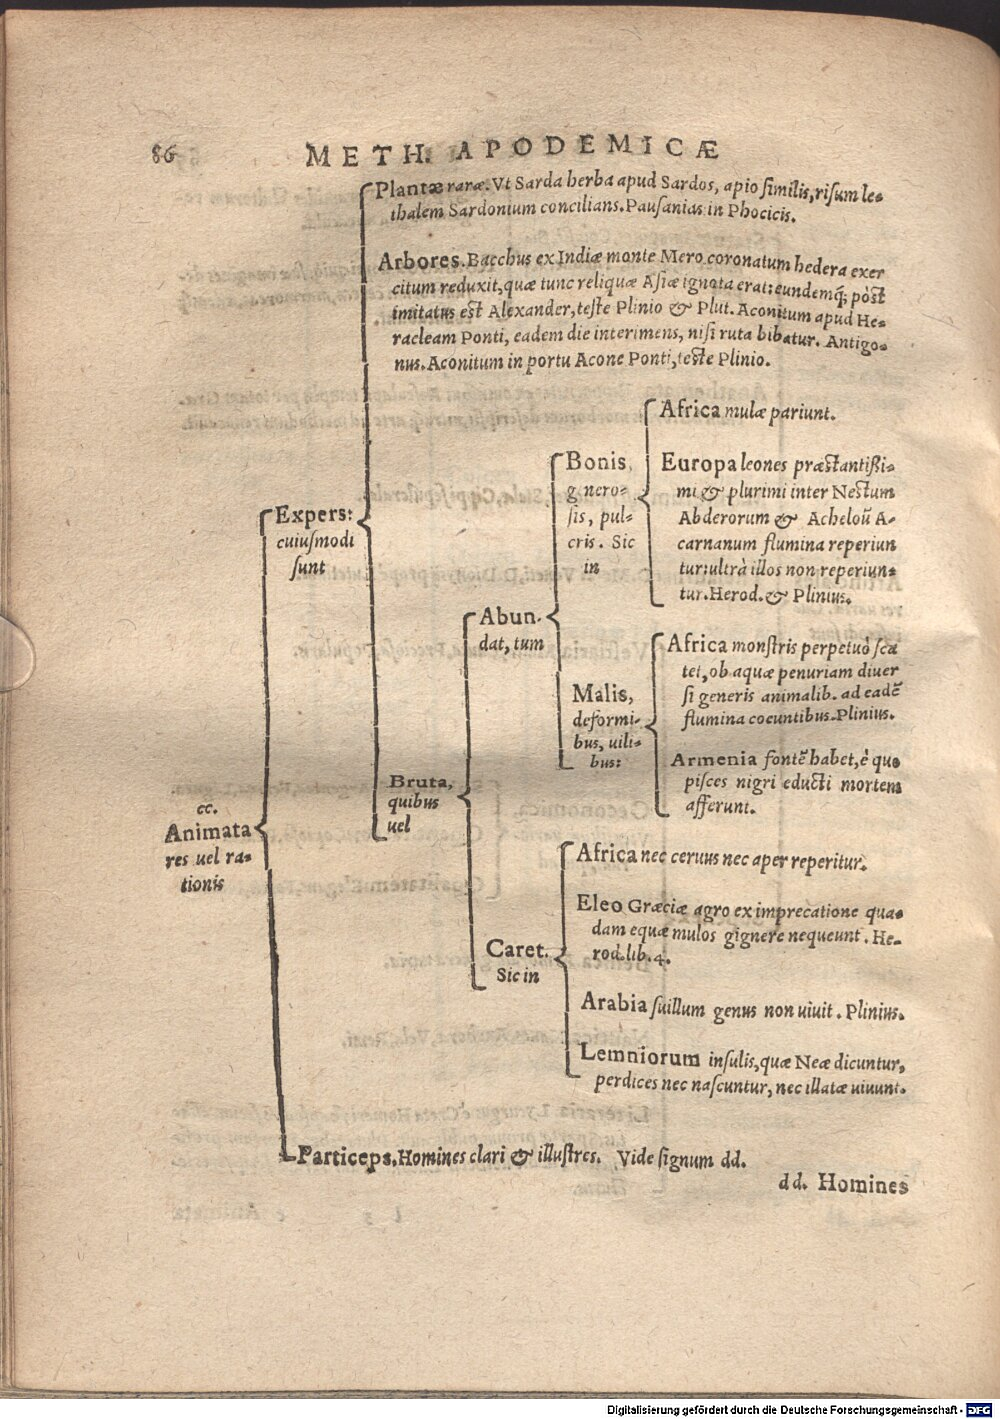 86
METH. APODEMICÆ
Plantæ raræ. Vt Sarda herba apud Sardos, apio ſimilis, riſum le-
thalem Sardonium concilians. Pauſanias in Phocicis.
Arbores. Bacchus ex Indiæ monte Mero coronatum hedera exer
citum reduxit, quæ tunc reliquæ Aſiæ ignota erat: eundemq́; pòst
imitatus est Alexander, teſte Plinio & Plut. Aconitum apud He-
racleam Ponti, eadem die interimens, niſi ruta bibatur. Antigo-
nus. Aconitum in portu Acone Ponti, teste Plinio.
Africa mulæ pariunt.
Bonis,
g nero-
ſis, pul-
cris. Sic
in
Europa leones præstantißi-
mi & plurimi inter Nestum
Abderorum & Acheloũ A-
carnanum flumina reperiun
tur: ultrà illos non reperiun-
tur. Herod. & Plinius.
Expers:
cuiuſmodi
ſunt
Abun-
dat, tum
Africa monſtris perpetuò ſca
tet, ob aquæ penuriam diuer
ſi generis animalib. ad eadẽ
flumina coeuntibus. Plinius.
Malis,
deformi-
bus, uili-
bus:
Armenia fontẽ habet, è quo
piſces nigri educti mortem
afferunt.
Bruta,
quibus
uel
cc.
Animata
res uel ra-
tionis
Africa nec ceruus nec aper reperitur.
Eleo Græciæ agro ex imprecatione qua-
dam equæ mulos gignere nequeunt. He-
rod. lib. 4.
Caret.
Sic in
Arabia ſuillum genus non uiuit. Plinius.
Lemniorum inſulis, quæ Neæ dicuntur,
perdices nec naſcuntur, nec illatæ uiuunt.
Particeps. Homines clari & illuſtres. Vide ſignum dd.
dd. Homines
Digitalisierung gefördert durch die Deutsche Forschungsgemeinschaft - DFG